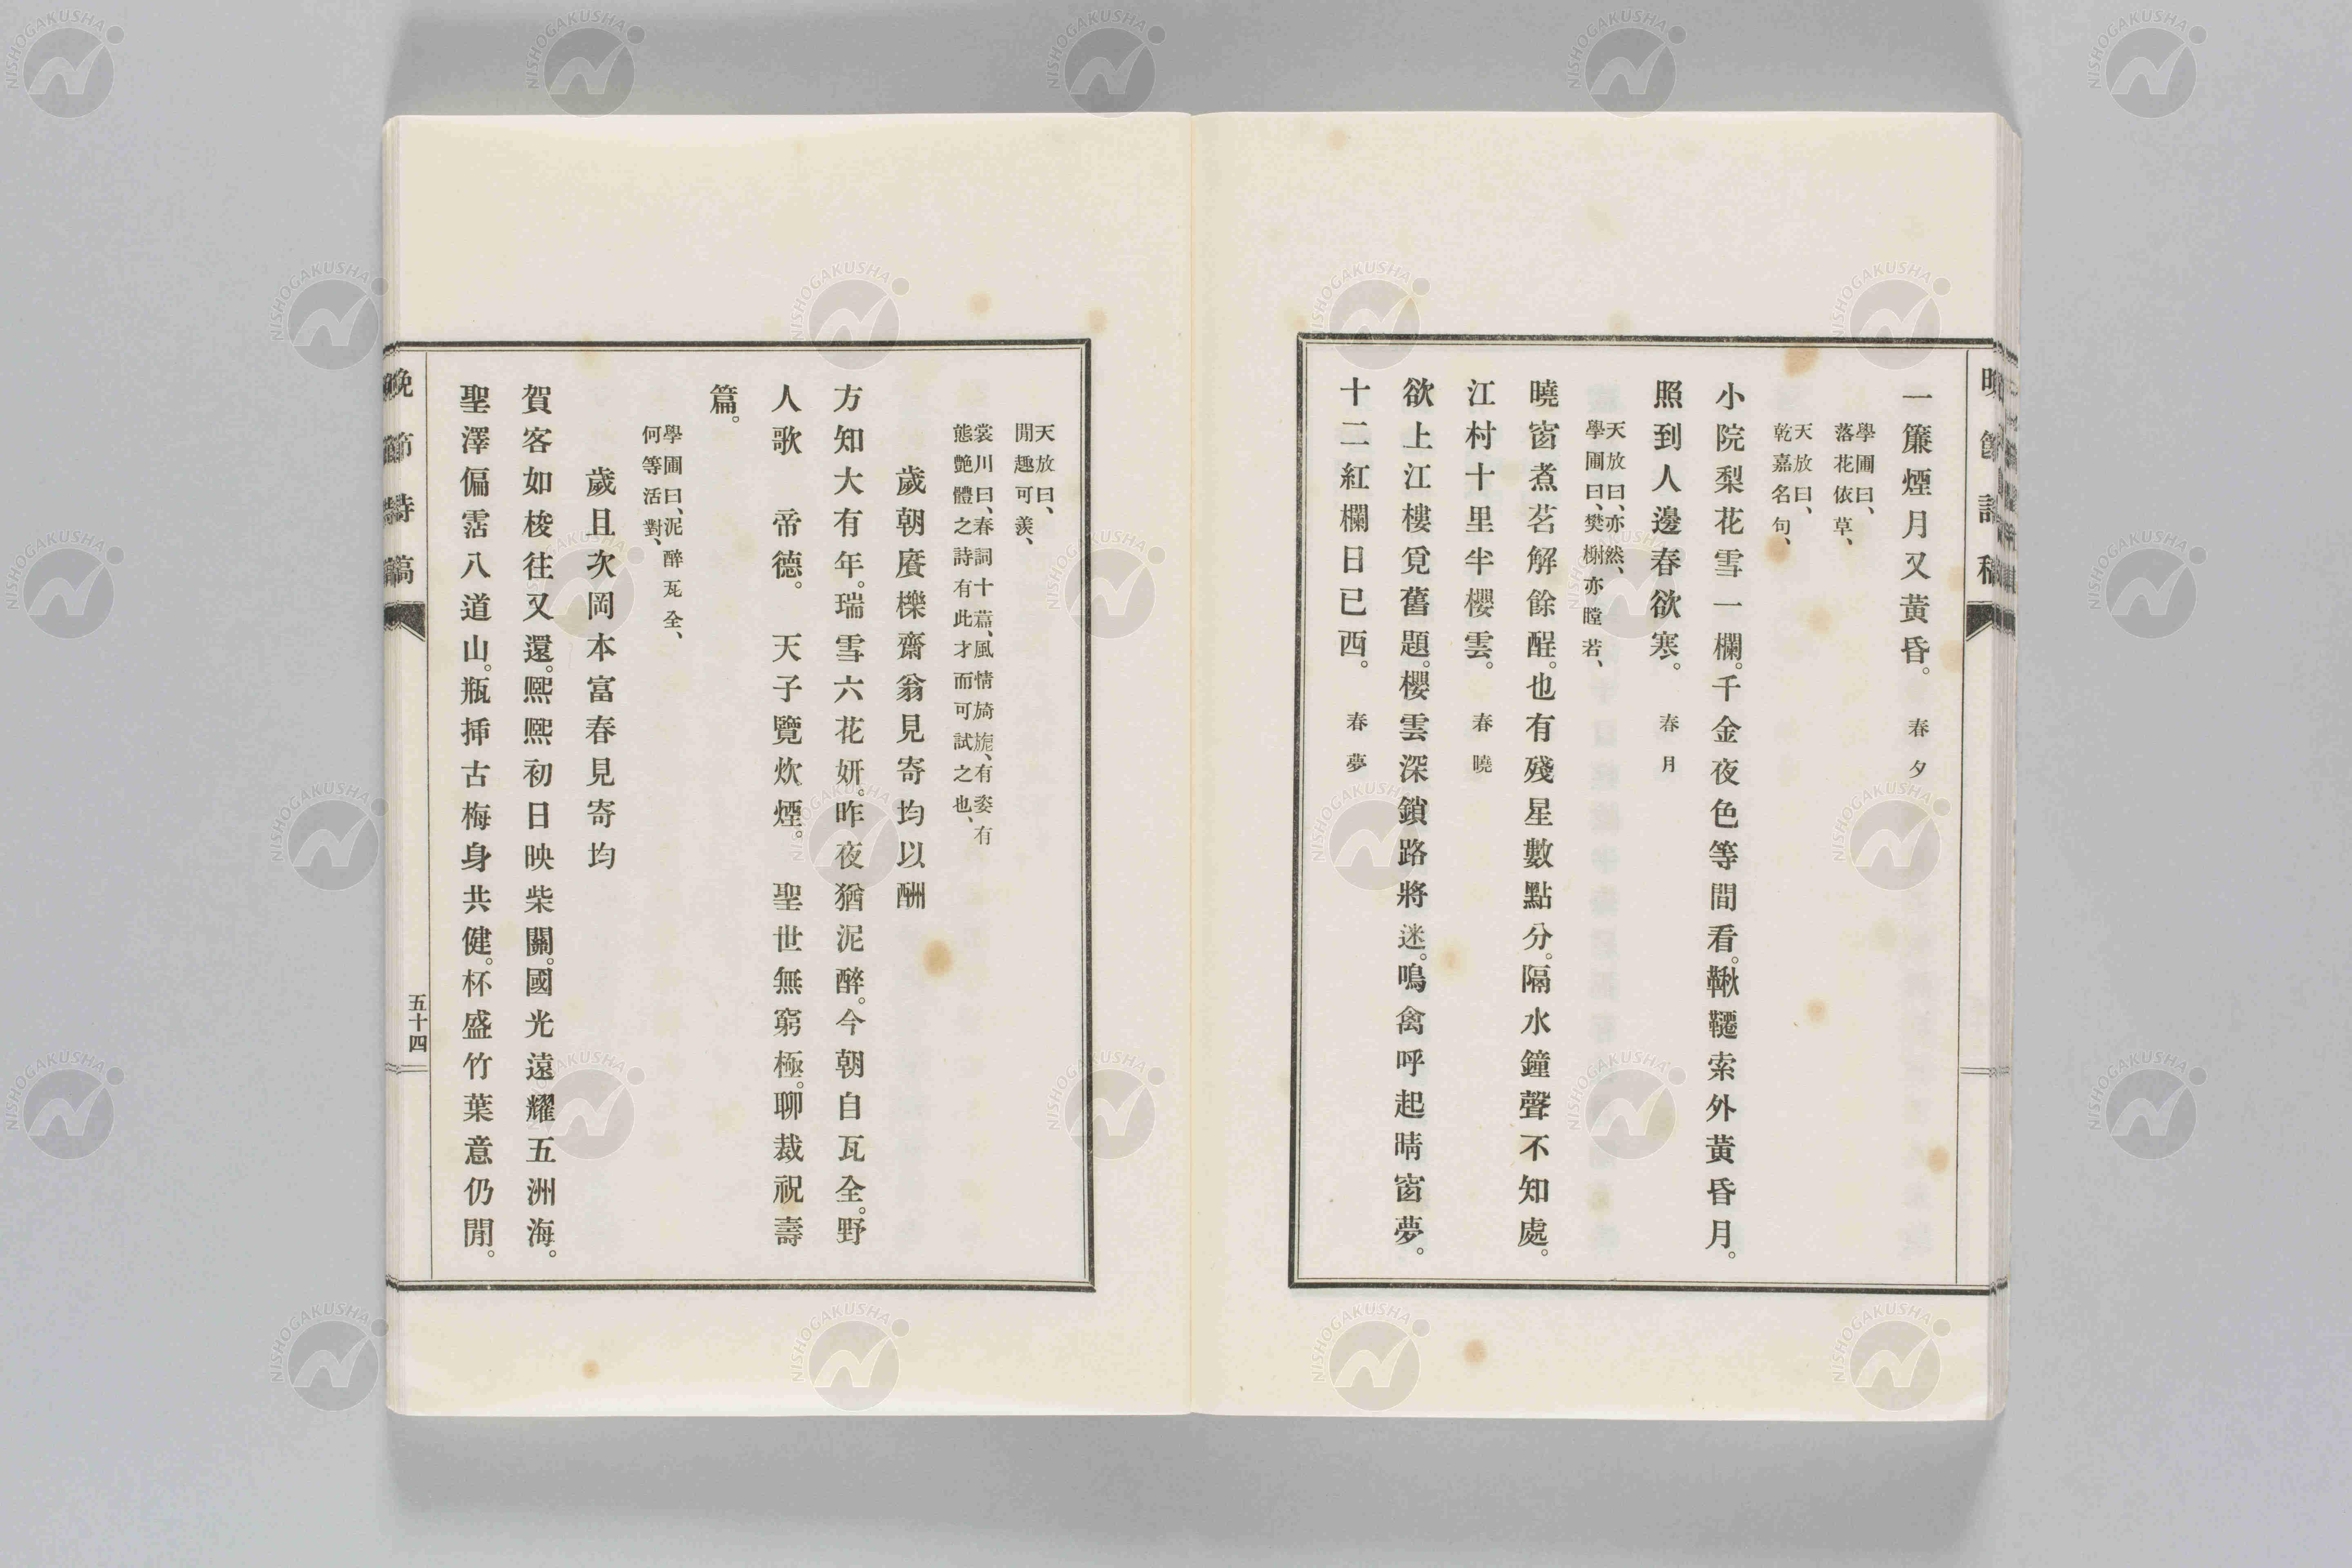 晚節詩稿
一簾煙月又黃昏。　春夕
學圃曰、
落花依草、
天放曰、
乾嘉名句、
小院梨花雪一欄。千金夜色等間看。鞦韆索外黃昏月。
照到人邊春欲寒。　春月
天放曰、亦然、
學圃曰、樊榭亦瞠若、
曉窗煮茗解餘酲。也有殘星數點分。隔水鐘聲不知處。
江村十里半櫻雲。　春曉
欲上江樓覓舊題。櫻雲深鎖路將迷。鳴禽呼起晴窗夢。
十二紅欄日已西。　春夢
天放曰、
閒趣可羨、
裳川曰、春詞十篇、風情旖旎、有姿有
態艷體之詩有此才而可試之也、
歲朝賡櫟齋翁見寄均以酬
方知大有年。瑞雪六花妍。昨夜猶泥醉。今朝自瓦全。野
人歌　帝德。　天子覽炊煙。　聖世無窮極。聊裁祝壽
篇。
學圃曰、泥醉瓦全、
何等活對、
歲且次岡本富春見寄均
賀客如梭往又還。熙熙初日映柴關。國光遠耀五洲海。
聖澤偏霑八道山。瓶揷古梅身共健。杯盛竹葉意仍閒。
晚節詩稿
五十四
NISHOGAKUSHA